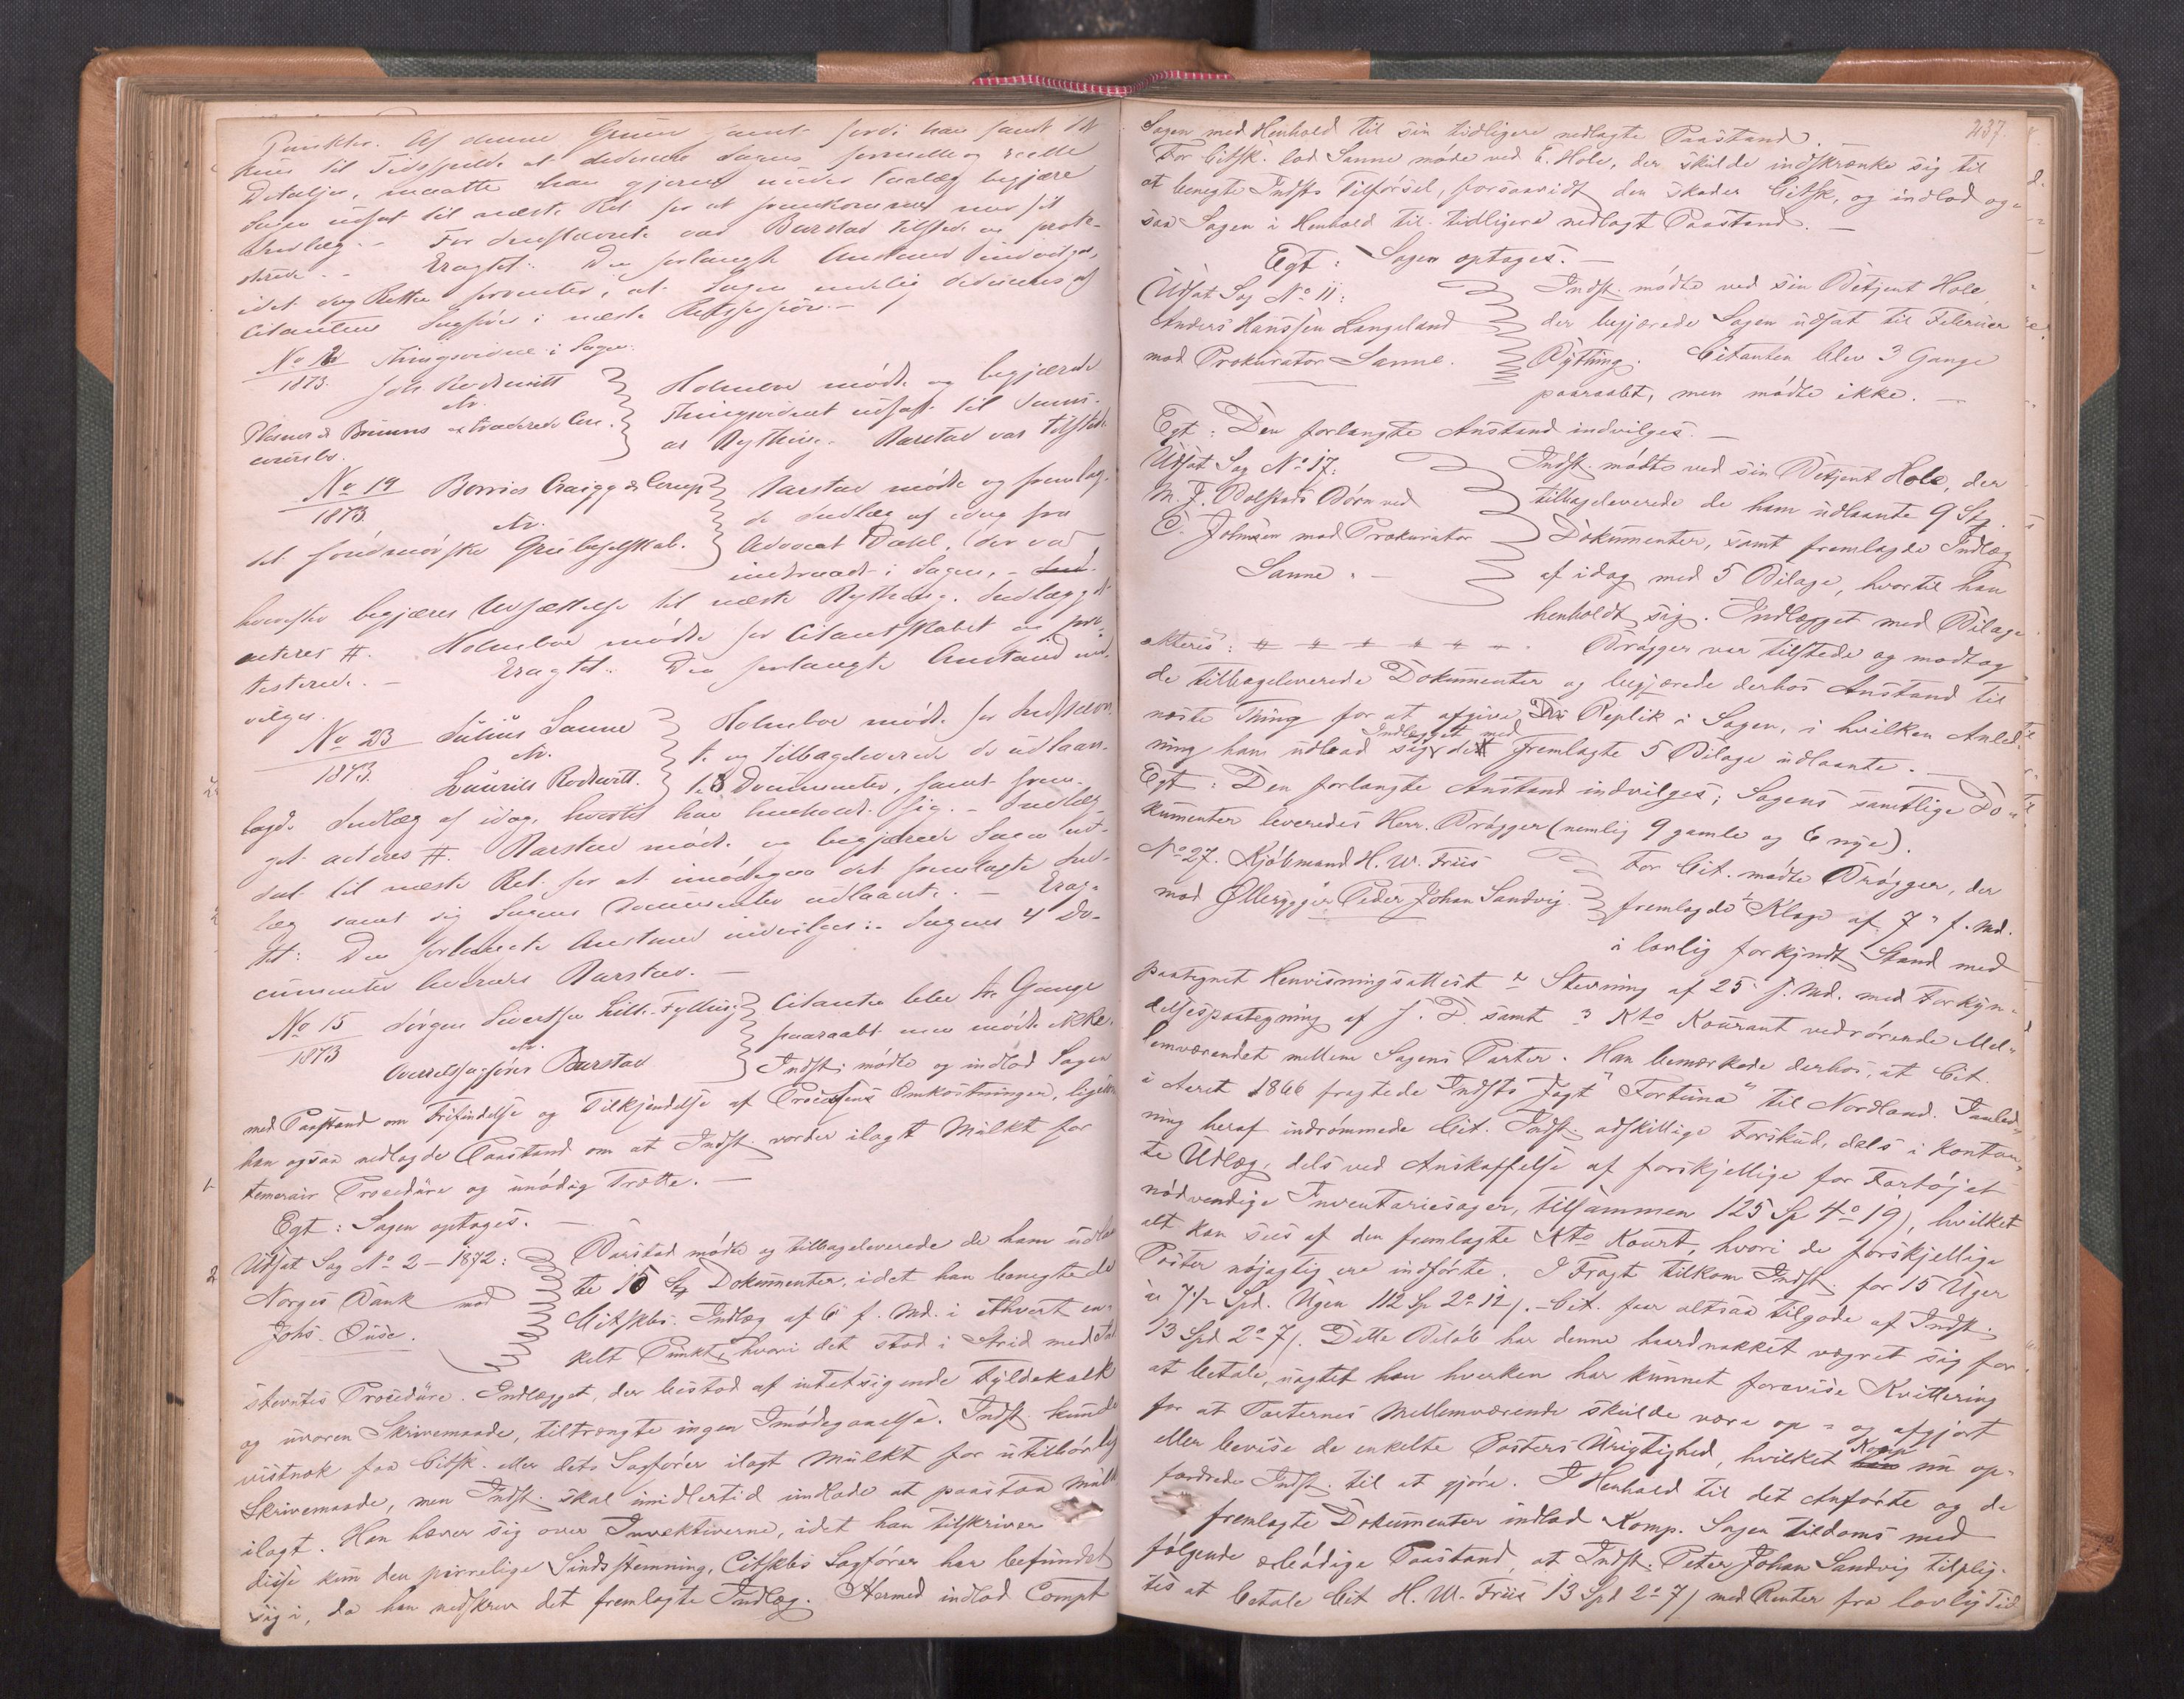 Punkter. Af denne Grund samt fordi han fandt det
Detaljer, maatte han gjerne under Forlæg begjære
Sagen udsat til næste Ret for at fremkomme med sit
Indlæg. - For Indstævnte var Barstad tilstede og prote-
sterede. - Eragtet: Den forlangte Anstand indvilges,
idet dog Retten forventer, at Sagen endelig deduceres af
Citantens Sagfører i næste Retssession. -
No 16 Thingsvidne i Sagen
1873. Joh. Rodtwitt
ctr.
Holmboe mødte og begjærede
Thingsvidnet udsat til Janu-
ar Bything. Barstad var tilstede.
No 19 Borries Craig & Comp
1873. ctr.
det søndmørske Grubeselskab.
Barstad mødte og fremlag-
de Indlæg af idag fra
Advocat Dahl, der var
indvaret i Sagen, -
hvorefter begjæres Udsættelse til næste Bything. Indlægget
acteres #. Holmboe mødte for Citantskabet og pro-
testerede. - Eragtet: Den forlangte Anstand ind-
vilges.
No 23 Julius Sanne
1873. ctr.
Laurits Rodtwitt.
Holmboe mødte for Indstævn-
te og tilbageleverede de udlaan-
te 3 Documenter, samt frem-
lagde Indlæg af idag, hvortil han henholdt sig. - Indlæg-
get acteres #. Barstad mødte og begjærede Sagen ud-
sat til næste Ret for at imødegaa det fremlagte Ind-
læg samt sig Sagens Documenter udlaante. - Erag-
tet: Den forlangte Anstand indvilges: Sagens 4 Do-
cumenter leveres Barstad. -
No 15 Jørgen Sivertsen Lille-Fylling
1873 ctr.
Overretssagfører Barstad
Citanten blev tre Gange
paaraabt men mødte ikke.
Indst. mødte og indlod Sagen
med Paastand om Frifindelse og Tilkjendelse af Processens Omkostninger, ligesom
han ogsaa nedlagde Paastand om at Indst. vorder ilagt Mulkt for
temerair Procedure og unødig Trætte. -
Egt: Sagen optages. -
Udsat Sag No 2 - 1872:
Norges Bank mod
Johs. Buse.
Barstad mødte og tilbageleverede de ham udlaan
te 15 St. Dokumenter, idet han benegtede
Citskbs. Indlæg af 6 f. Md. i ethvert en-
kelt Punkt, hvori det stod i Strid med
stevntes Procedure. Indlægget, der bestod af intetsigende Fyldekalk
og uvoren Skrivemaade, tiltrængte ingen Imødegaaelse. Indst. kunde
vistnok faa Citsk. eller dets Sagfører ilagt Mulkt for utilbørlig
Skrivemaade, men Indst. skal imidlertid undlade at paastaa Mulkt
ilagt. Han hæver sig over Invektiverne, idet han tilskriver
disse kun den pirrelige Sindsstemning, Citskbs Sagfører har befundet
sig i, da han nedskrev det fremlagte Indlæg. Hermed indlod Compt
237.
Sagen med Henhold til sin tidligere nedlagte Paastand.
For Citsk. lod Sanne møde ved E. Hole, der skulde indskrænke sig til
at benegte Indsts Tilførsel, forsaavidt den skader Citsk, og indlod og-
saa Sagen i Henhold til tidligere nedlagt Paastand. -
Egt: Sagen optages. -
Udsat Sag No 11:
Anders Hanssen Langeland
mod Prokurator Sanne.
Indst. mødte ved sin Betjent Hole,
der begjærede Sagen udsat til Februar
Bything. Citanten blev 3 Gange
paaraabt, men mødte ikke. -
Egt: Den forlangte Anstand indvilges. -
Udsat Sag No 17:
M. J. Bolstads Børn ved
C. Johnsen mod Prokurator
Sanne. -
Indst. mødte ved sin Betjent Hole, der
tilbageleverede de ham udlaante 9 St.
Dokumenter, samt fremlagde Indlæg
af idag med 5 Bilage, hvortil han
henholdt sig. Indlægget med Bilage
akteres: # # # # # #. Brøgger var tilstede og modtog
de tilbageleverede Dokumenter og begjærede derhos Anstand til
næste Thing for at afgive Replik i Sagen, i hvilken Anled-
Indlægget med
ning han udbad sig de fremlagte 5 Bilage udlaante. -
Egt: Den forlangte Anstand indvilges; Sagens samtlige Do-
kumenter leveredes Herr. Brøgger (nemlig 9 gamle og 6 nye).
No 27. Kjøbmand H. W. Friis
mod Ølbrygger Peder Johan Sandvig.
For Cit. mødte Brøgger, der
fremlagde 1 Klage af 7 f. Md.
i lovlig forkyndt Stand med
paategnet Henvisningsattest 2 Stevning af 25 f. Md. med Forkyn-
delsespaategning af s. D. samt 3 Kto Kourant vedrørende Mel-
lemværendet mellem Sagens Parter. Han bemærkede derhos, at Cit.
i Aaret 1866 fragtede Indsts Jagt "Fortuna" til Nordland. I anled-
ning heraf indrømmede Cit. Indst. adskillige Forskud, dels i kontan-
te Udlæg, dels ved Anskaffelse af forskjellige for Fartøjet
nødvendige Inventariesager, tilsammen 125 Sp 4 o 19 /, hvilket
alt kan sees af den fremlagte Kto Kourt, hvori de forskjellige
Poster nøjagtig ere indførte. I Fragt tilkom Indst. for 15 Uger
à 7½ Spd. Ugen 112 Sp 2 o 12 /. - Cit. faar altsaa tilgode af Indst.
13 Spd 2 o 7 /. Dette Beløb har denne haardnakket vegret sig for
at betale, uagtet han hverken har kunnet forevise Kvittering
for at Parternes Mellemværende skulde være op- og afgjort
eller bevise de enkelte Posters Urigtighed, hvilket Komp nu op-
fordrede Indst. til at gjøre. I Henhold til det Anførte og de
fremlagte Dokumenter indlod Komp. Sagen tildoms med
følgende ærbødige Paastand, at Indst. Peter Johan Sandvig tilplig-
tes at betale Cit H. W. Friis 13 Spd 2 o 7 / med Renter fra lovlig Tid